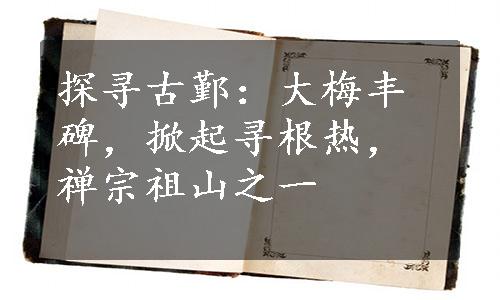 探寻古鄞：大梅丰
碑，掀起寻根热，
禅宗祖山之一